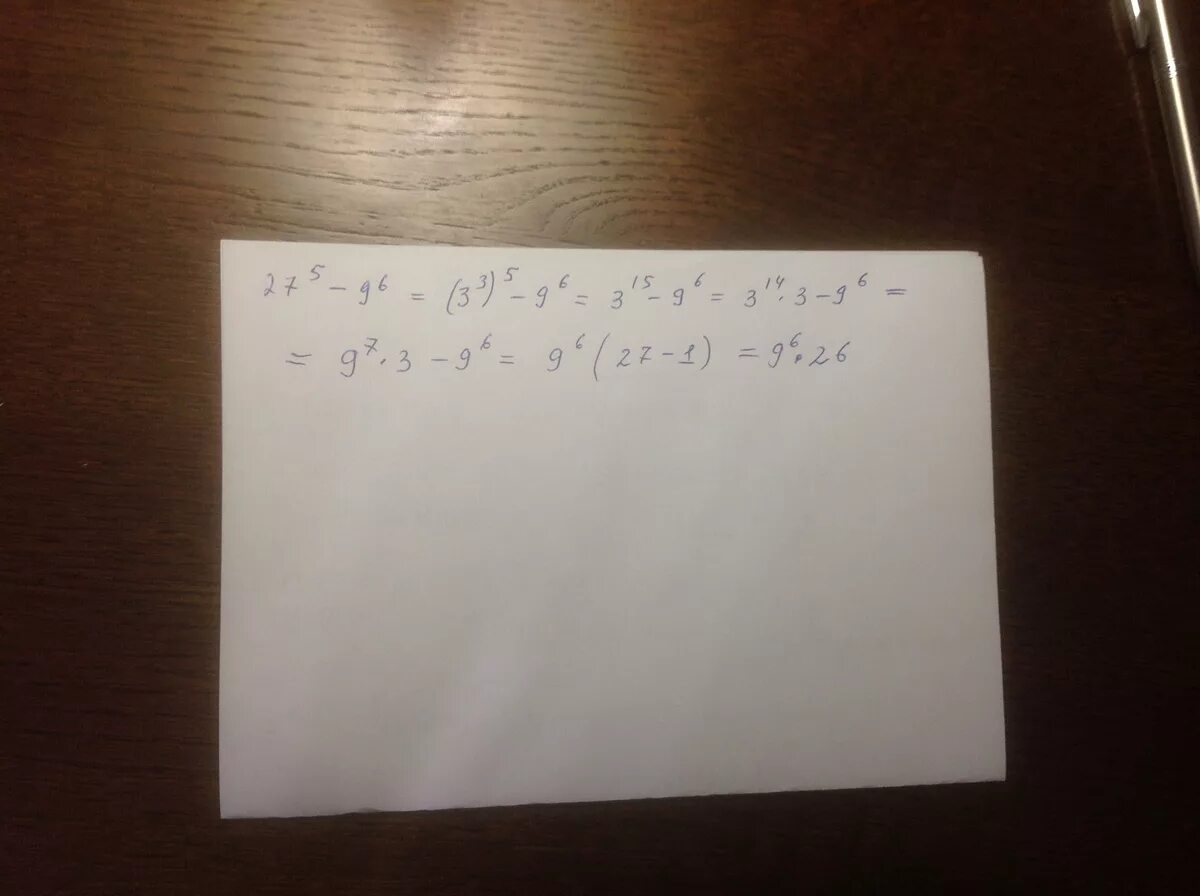 27⁵ - 9⁶ = (3³)⁵ - 9⁶ = 3¹⁵ - 9⁶ = 3¹⁴ · 3 - 9⁶ =
= 9⁷ · 3 - 9⁶ = 9⁶ (27 - 1) = 9⁶ · 26